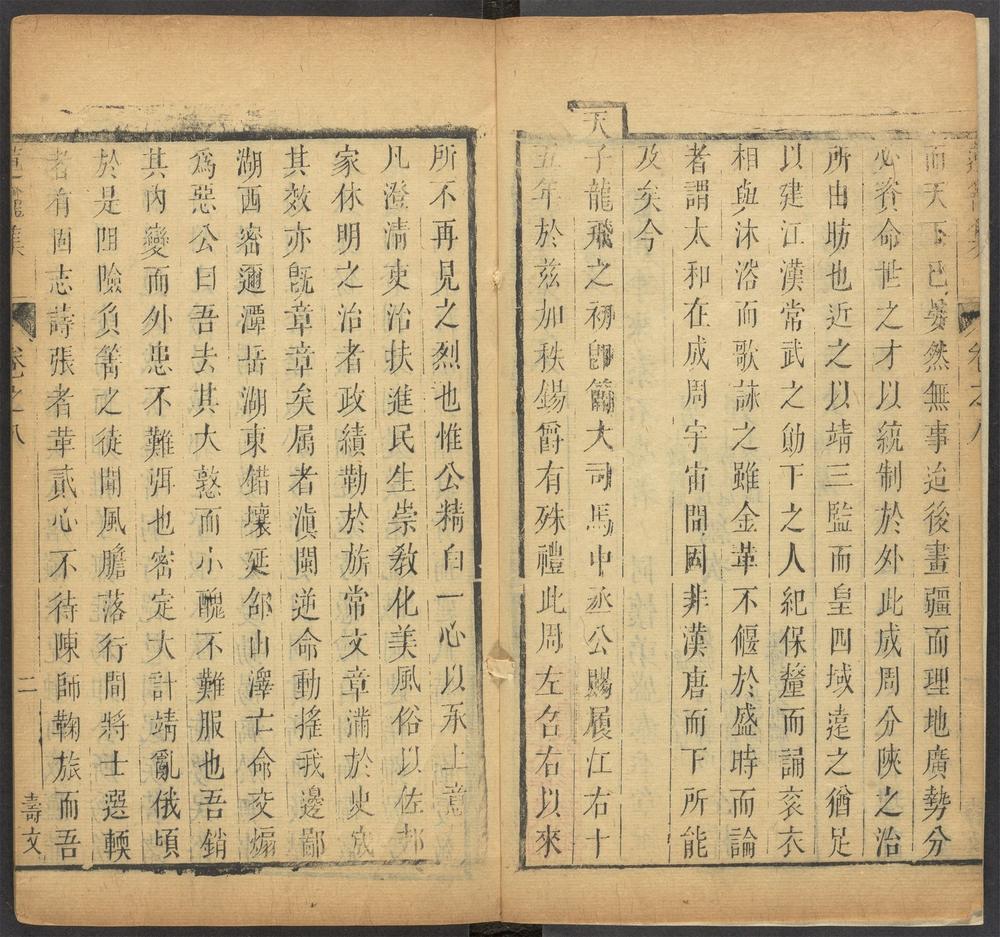 而天下已晏然無事迨後畫疆而理地廣勢分
必賚命世之才以統制於外此成周分陝之治
所由昉也近之以靖三監而皇四域遠之猶足
以建江漢常武之勛下之人紀保釐而誦衮衣
相與沐浴而歌詠之雖金革不偃於盛時而論
者謂太和在成周宇宙間固非漢唐而下所能
及矣今
天子龍飛之初卽簡大司馬中丞公賜履江右十
五年於兹加秩錫爵有殊禮此周左召右以來
所不再見之烈也惟公精白一心以承上意
凡澄淸吏治扶進民生崇敎化美風俗以佐邦
家休明之治者政績勒於旂常文章滿於史宬
其效亦旣章章矣属者滇閩逆命動摇我邊鄙
湖西密邇潭岳湖東錯壤延邵山澤亡命交煽
爲惡公曰吾去其大憝而小醜不難服也吾銷
其内變而外患不難弭也密定大計靖亂俄頃
於是阻險負篝之徒聞風膽落行間將士選輭
者有固志譸張者葦貳心不待陳師鞠旅而吾
集
卷之八
二
壽文
卷之八